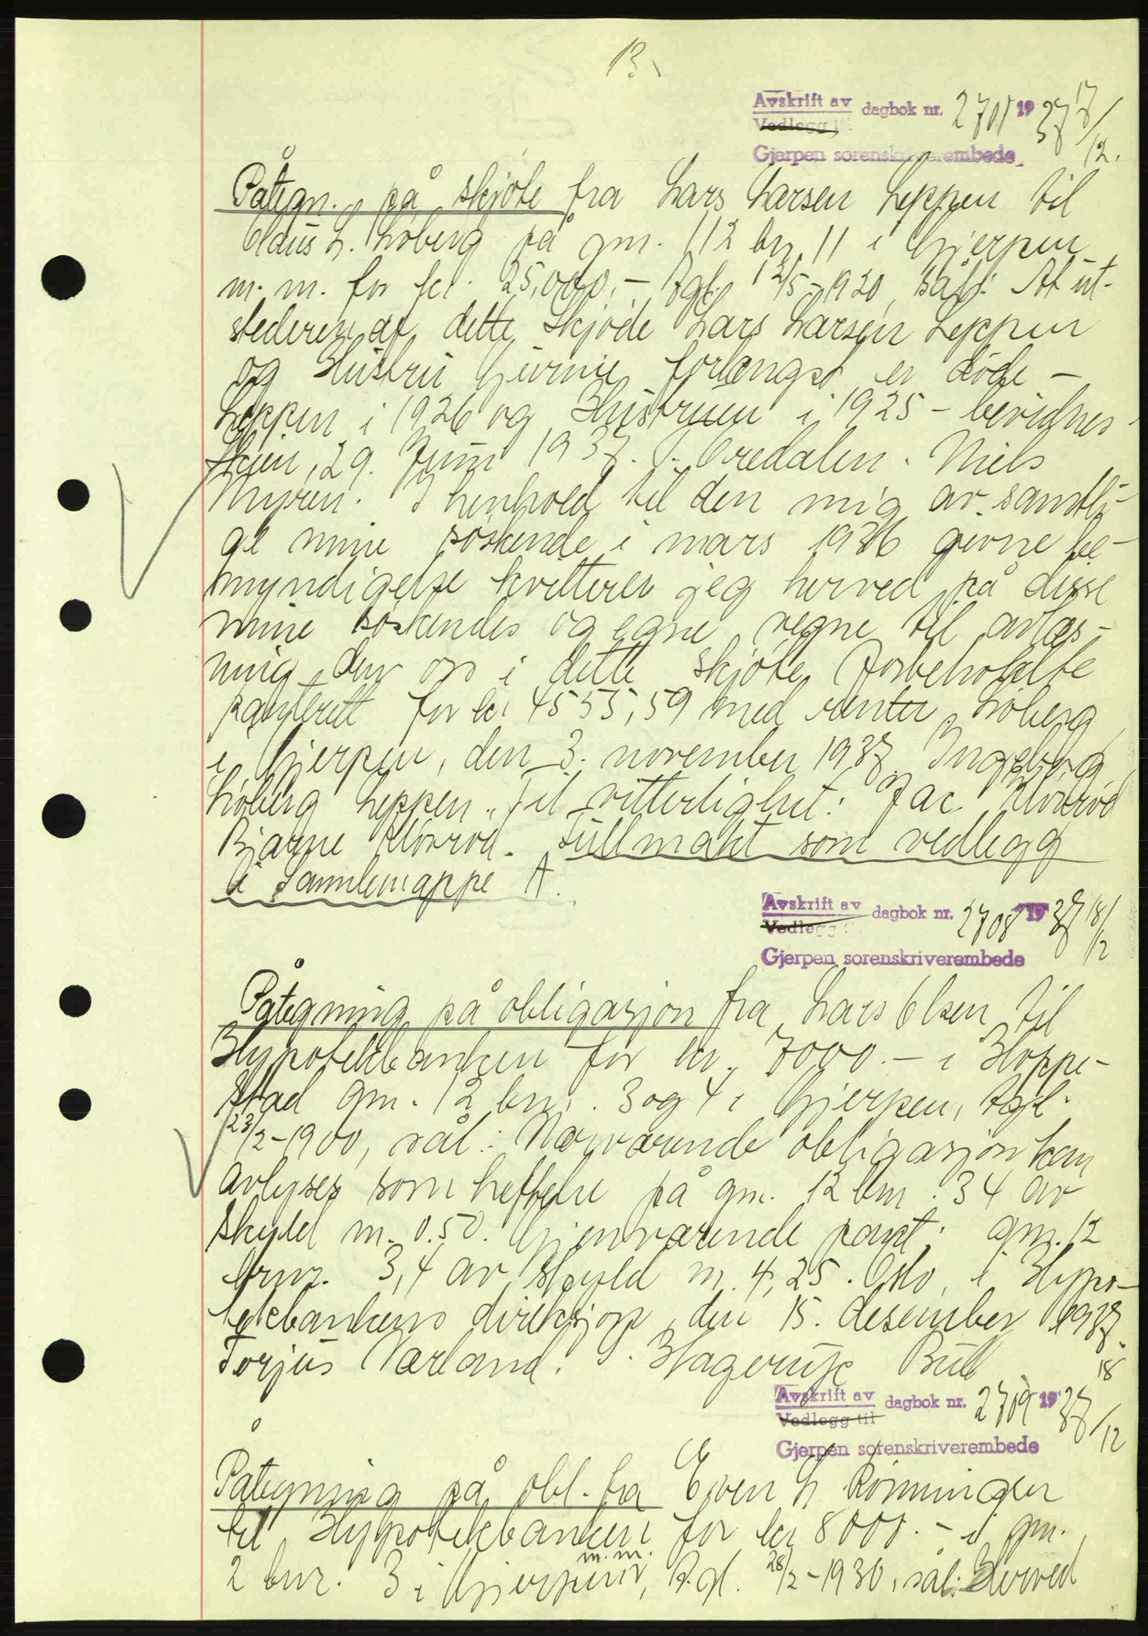 13.
Avskrift av dagbok nr. 2701 1937 17/12.
Vedlegg til
Gjerpen sorenskriverembede
Påtegn. på skjöte fra Lars Larsen Leppen til
Claus L. Löberg på gnr. 112 bn 11 i Gjerpen
m. m. for kr. 25.000,- Tgl. 12/5-1920, sål: At ut-
stederen af dette skjöde Lars Larsen Leppen
og Hustru Gurine forlængst er döde -
Leppen i 1926 og Hustruen i 1925 - bevidnes
Skien, 29. Juni 1937. J. Bredalen. Niels
Myren. I henhold til den mig av samtli-
ge mine söskende i mars 1936 givne be-
myndigelse kvitterer jeg herved på disse
mine söskendes og egne vegne til avlæs-
ning den os i dette skjöte forbeholdte
panterett for kr 4555,59 med renter. Löberg
i Gjerpen, den 3. november 1937 Ingeborg
Löberg Leppen. Til vitterlighet: Jac.
Bjarne. Fullmakt som vedlegg
i Samlemappe A.
Avskrift av dagbok nr. 2708 1937 18/12
Vedlegg til
Gjerpen sorenskriverembede
Påtegning på obligasjon fra Lars Olsen til
Hypotekbanken for kr. 7000.- i Hoppe-
stad gnr. 12 bnr. 3 og 4 i Gjerpen, tgl.
23/2-1900, sål: Nærværende obligasjon kan
avlyses som heftelse på gnr. 12 bnr. 34 av
skyld m. 0.50. Gjenværende pant: gnr. 12
bnr. 3,4 av skyld m. 4,25. Oslo, i Hypo-
tekbankens direksjon, den 15. desember 1937.
Torjus Værland. Hagerup Bull
Avskrift av dagbok nr. 2709 1937 18/12
Vedlegg til
Gjerpen sorenskriverembede
Påtegning på obl. fra Even H. Rönningen
til Hypotekbanken for kr 8000.- i gnr.
2 bnr. 3 i Gjerpen m.m., Tgl. 28/2-1930, sål: Herved